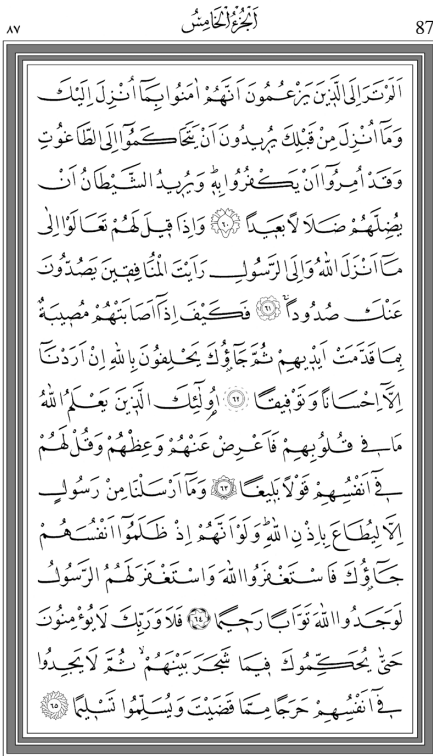 ٨٧ اَلْجُزْءُ الْخَامِسُ 87
اَلَمْ تَرَ اِلَى الَّذ۪ينَ يَزْعُمُونَ اَنَّهُمْ اٰمَنُوا بِمَٓا اُنْزِلَ اِلَيْكَ
وَمَٓا اُنْزِلَ مِنْ قَبْلِكَ يُر۪يدُونَ اَنْ يَتَحَاكَمُٓوا اِلَى الطَّاغُوتِ
وَقَدْ اُمِرُٓوا اَنْ يَكْفُرُوا بِه۪ۜ وَيُر۪يدُ الشَّيْطَانُ اَنْ
يُضِلَّهُمْ ضَلَالًا بَع۪يداً ﴿٦٠﴾ وَاِذَا ق۪يلَ لَهُمْ تَعَالَوْا اِلٰى
مَٓا اَنْزَلَ اللّٰهُ وَاِلَى الرَّسُولِ رَاَيْتَ الْمُنَافِق۪ينَ يَصُدُّونَ
عَنْكَ صُدُوداًۚ ﴿٦١﴾ فَكَيْفَ اِذَٓا اَصَابَتْهُمْ مُص۪يبَةٌ
بِمَا قَدَّمَتْ اَيْد۪يهِمْ ثُمَّ جَٓاؤُ۫كَ يَحْلِفُونَ بِاللّٰهِ اِنْ اَرَدْنَٓا
اِلَّٓا اِحْسَاناً وَتَوْف۪يقاً ﴿٦٢﴾ اُو۬لٰٓئِكَ الَّذ۪ينَ يَعْلَمُ اللّٰهُ
مَا ف۪ي قُلُوبِهِمْ فَاَعْرِضْ عَنْهُمْ وَعِظْهُمْ وَقُلْ لَهُمْ
ف۪ٓي اَنْفُسِهِمْ قَوْلاً بَل۪يغاً ﴿٦٣﴾ وَمَٓا اَرْسَلْنَا مِنْ رَسُولٍ
اِلَّا لِيُطَاعَ بِاِذْنِ اللّٰهِۜ وَلَوْ اَنَّهُمْ اِذْ ظَلَمُٓوا اَنْفُسَهُمْ
جَٓاؤُ۫كَ فَاسْتَغْفَرُوا اللّٰهَ وَاسْتَغْفَرَ لَهُمُ الرَّسُولُ
لَوَجَدُوا اللّٰهَ تَوَّاباً رَح۪يماً ﴿٦٤﴾ فَلَا وَرَبِّكَ لَا يُؤْمِنُونَ
حَتّٰى يُحَكِّمُوكَ ف۪يمَا شَجَرَ بَيْنَهُمْ ثُمَّ لَا يَجِدُوا
ف۪ٓي اَنْفُسِهِمْ حَرَجاً مِمَّا قَضَيْتَ وَيُسَلِّمُوا تَسْل۪يماً ﴿٦٥﴾